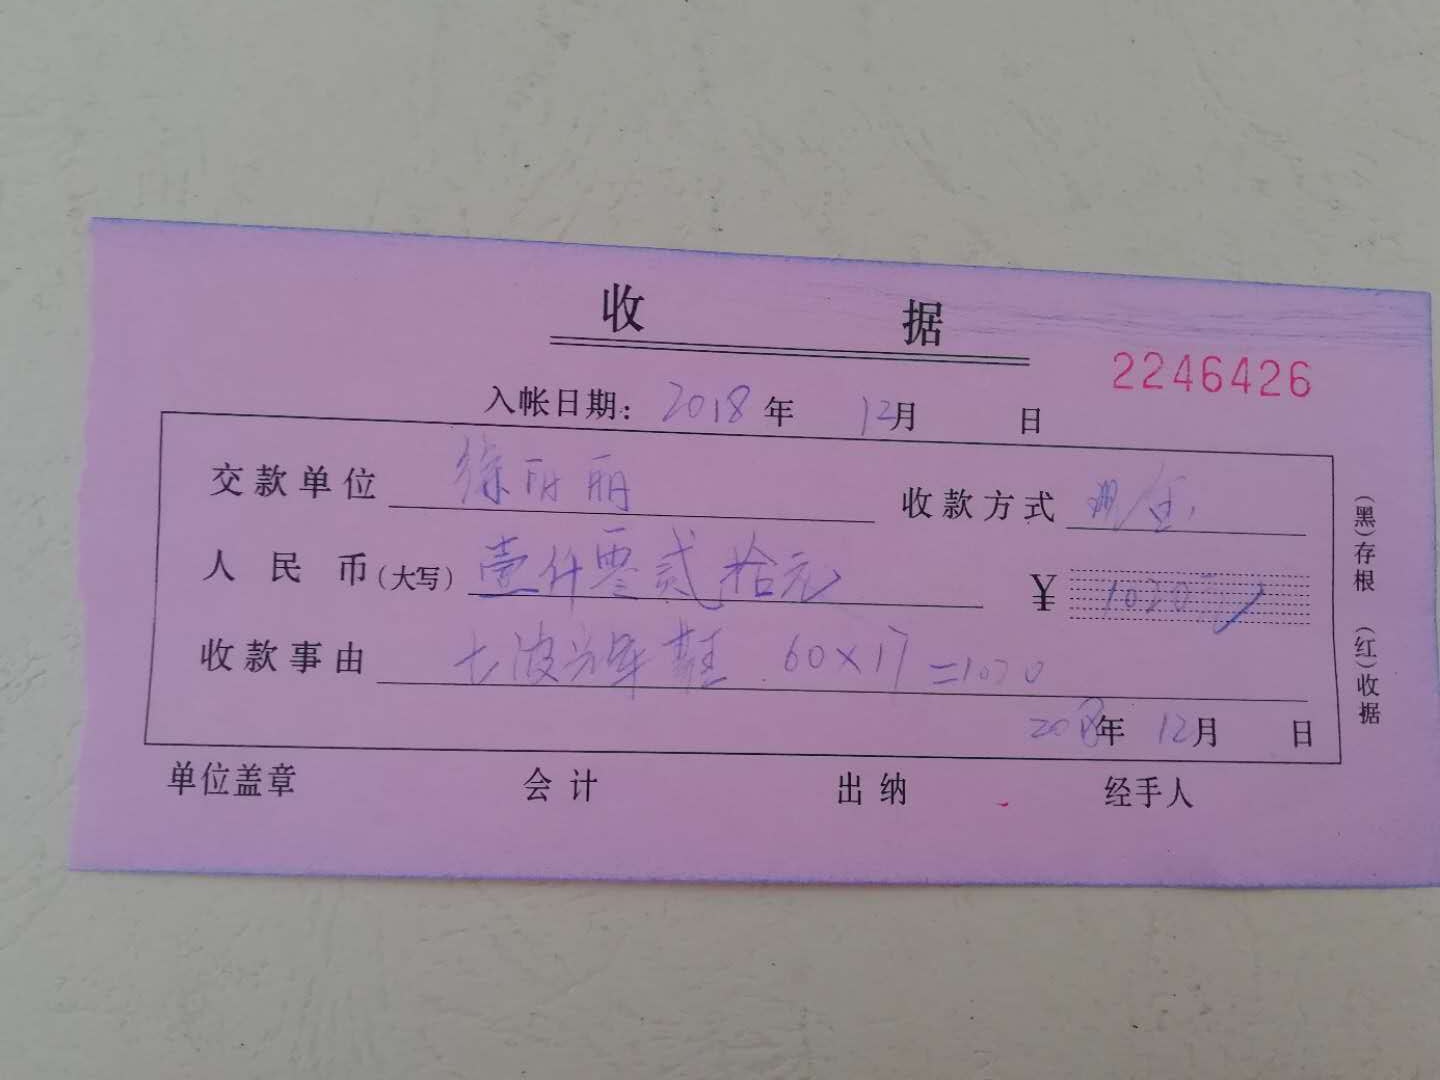 收 据
2246426
入帐日期: 2018 年 12月 日
交款单位 徐丽丽 收款方式 现金
人民币(大写) 壹仟零贰拾元 ¥ 1020元
收款事由 七波辉鞋 60×17=1020
2018年 12月 日
单位盖章 会计 出纳 经手人
(黑)存根 (红)收据